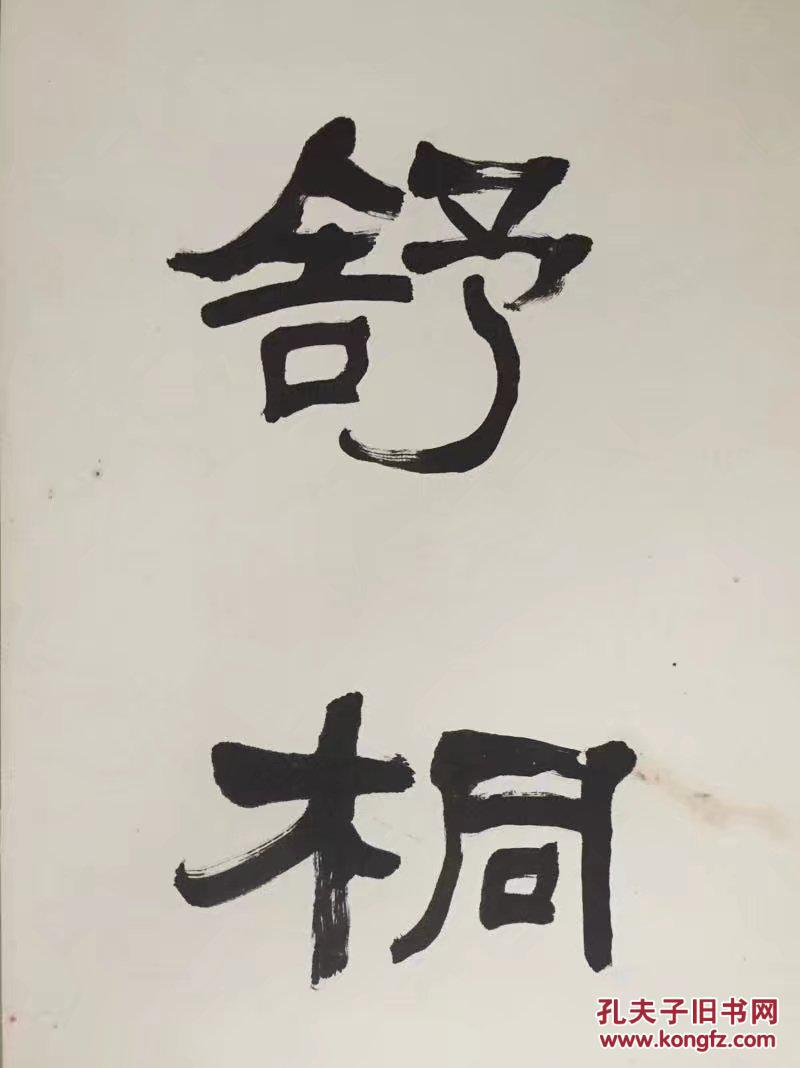 舒
桐
孔夫子旧书网
www.kongfz.com